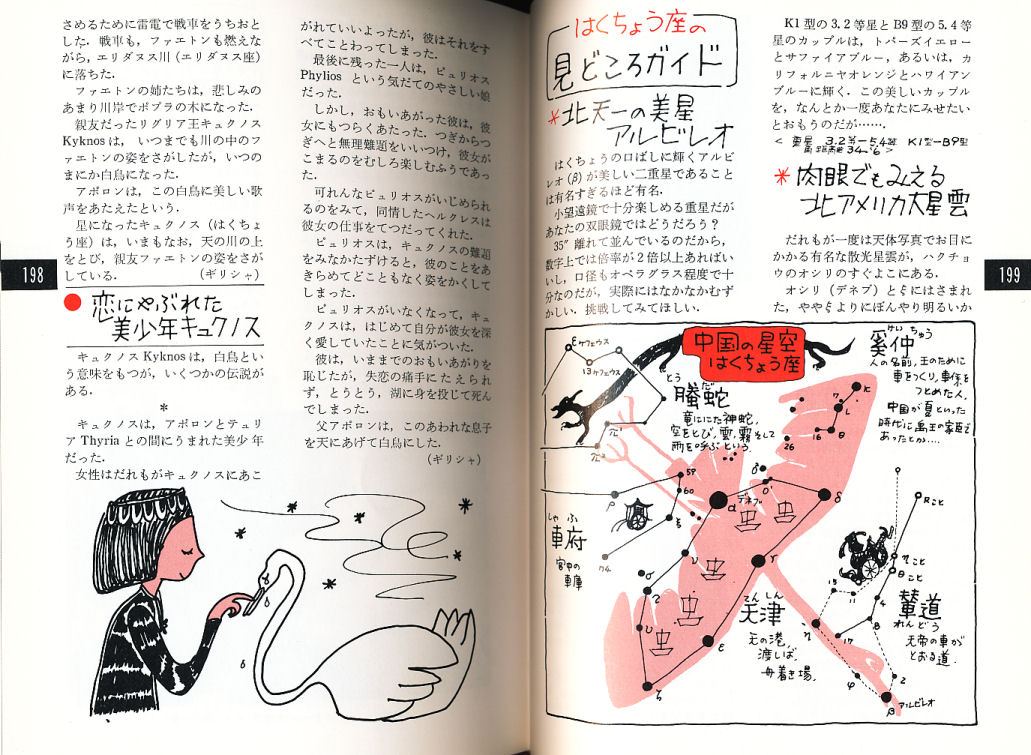 さめるために雷電で戦車をうちおと
した．戦車も，ファエトンも燃えな
がら，エリダヌス川（エリダヌス座）
に落ちた．
ファエトンの姉たちは，悲しみの
あまり川岸でポプラの木になった．
親友だったリグリア王キュクノス
Kyknosは，いつまでも川の中のフ
ァエトンの姿をさがしたが，いつの
まにか白鳥になった．
アポロンは，この白鳥に美しい歌
声をあたえたという．
星になったキュクノス（はくちょ
う座）は，いまもなお，天の川の上
をとび，親友ファエトンの姿をさが
している．（ギリシャ）
198
恋にやぶれた
美少年キュクノス
キュクノスKyknosは，白鳥とい
う意味をもつが，いくつかの伝説が
ある．
＊
キュクノスは，アポロンとテュリ
アThyriaとの間にうまれた美少年
だった．
女性はだれもがキュクノスにあこ
がれていいよったが，彼はそれをす
べてことわってしまった．
最後に残った一人は，ピュリオス
Phyliosという気だてのやさしい娘
だった．
しかし，おもいあがった彼は，彼
女にもつらくあたった．つぎからつ
ぎへと無理難題をいいつけ，彼女が
こまるのをむしろ楽しむふうであっ
た．
可れんなピュリオスがいじめられ
るのをみて，同情したヘルクレスは
彼女の仕事をてつだってくれた．
ピュリオスは，キュクノスの難題
をみなかたずけると，彼のことをあ
きらめてどこともなく姿をかくして
しまった．
ピュリオスがいなくなって，キュ
クノスは，はじめて自分が彼女を深
く愛していたことに気がついた．
彼は，いままでのおもいあがりを
恥じたが，失恋の痛手にたえられ
ず，とうとう，湖に身を投じて死ん
でしまった．
父アポロンは，このあわれな息子
を天にあげて白鳥にした．
（ギリシャ）
はくちょう座の
見どころガイド
＊北天一の美星
アルビレオ
はくちょうの口ばしに輝くアルビ
レオ（β）が美しい二重星であること
は有名すぎるほど有名．
小望遠鏡で十分楽しめる重星だが
あなたの双眼鏡ではどうだろう？
35″離れて並んでいるのだから，
数字上では倍率が2倍以上あればい
いし，口径もオペラグラス程度で十
分なのだが，実際にはなかなかむず
かしい．挑戦してみてほしい．
K1型の3.2等星とB9型の5.4等
星のカップルは，トパーズイエロー
とサファイアブルー，あるいは，カ
リフォルニヤオレンジとハワイアン
ブルーに輝く．この美しいカップル
を，なんとか一度あなたにみせたい
とおもうのだが……．
＜重星 3.2等―5.4等 K1型―B9型
角距離 34″.6＞
＊肉眼でもみえる
北アメリカ大星雲
だれもが一度は天体写真でお目に
かかる有名な散光星雲が，ハクチョ
ウのオシリのすぐよこにある．
オシリ（デネブ）とξにはさまれ
た，ややξよりにぼんやり明るいか
199
中国の星空
はくちょう座
ξケフェウス
13ケフェウス
とうだ
螣蛇
竜ににた神蛇，
空をとび，雲，霧そして
雨を呼ぶという．
けいちゅう
奚仲
人の名前，王のために
車をつくり，車係を
つとめた人．
中国が夏といった
時代に禹王の家臣で
あったとか…．
κ
7
ι
16
θ
26
π¹
π²
59
60
ρ
ξ
74
ο²
ο¹
デネブ
α
δ
しゃふ
車府
宮中の
車庫
ν
σ
τ
υ
γ
ε
ζ
てんしん
天津
天の港，
渡しば，
舟着き場．
Rこと
ηこと
θこと
15
11
4
8
17
η
φ
2
β
アルビレオ
れんどう
輦道
天帝の車が
とおる道．